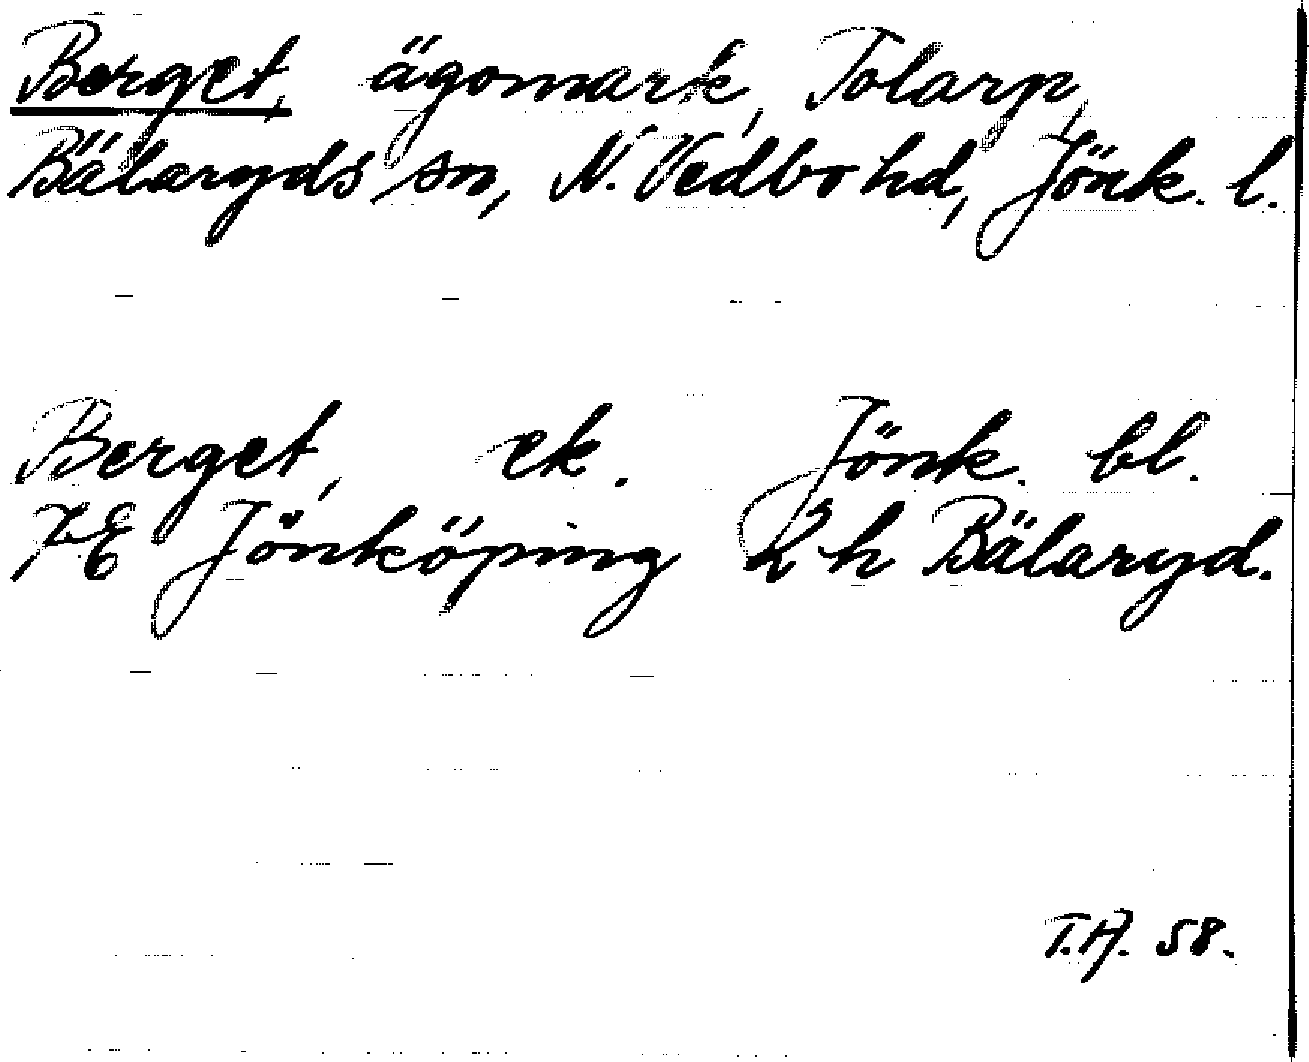 Berget, ägomark, Tolarp,
Bälaryds sn, N. Vedbo hd, Jönk. l.
Berget, ek. Jönk. bl.
7E Jönköping 2h Bälaryd.
T.A. 58.